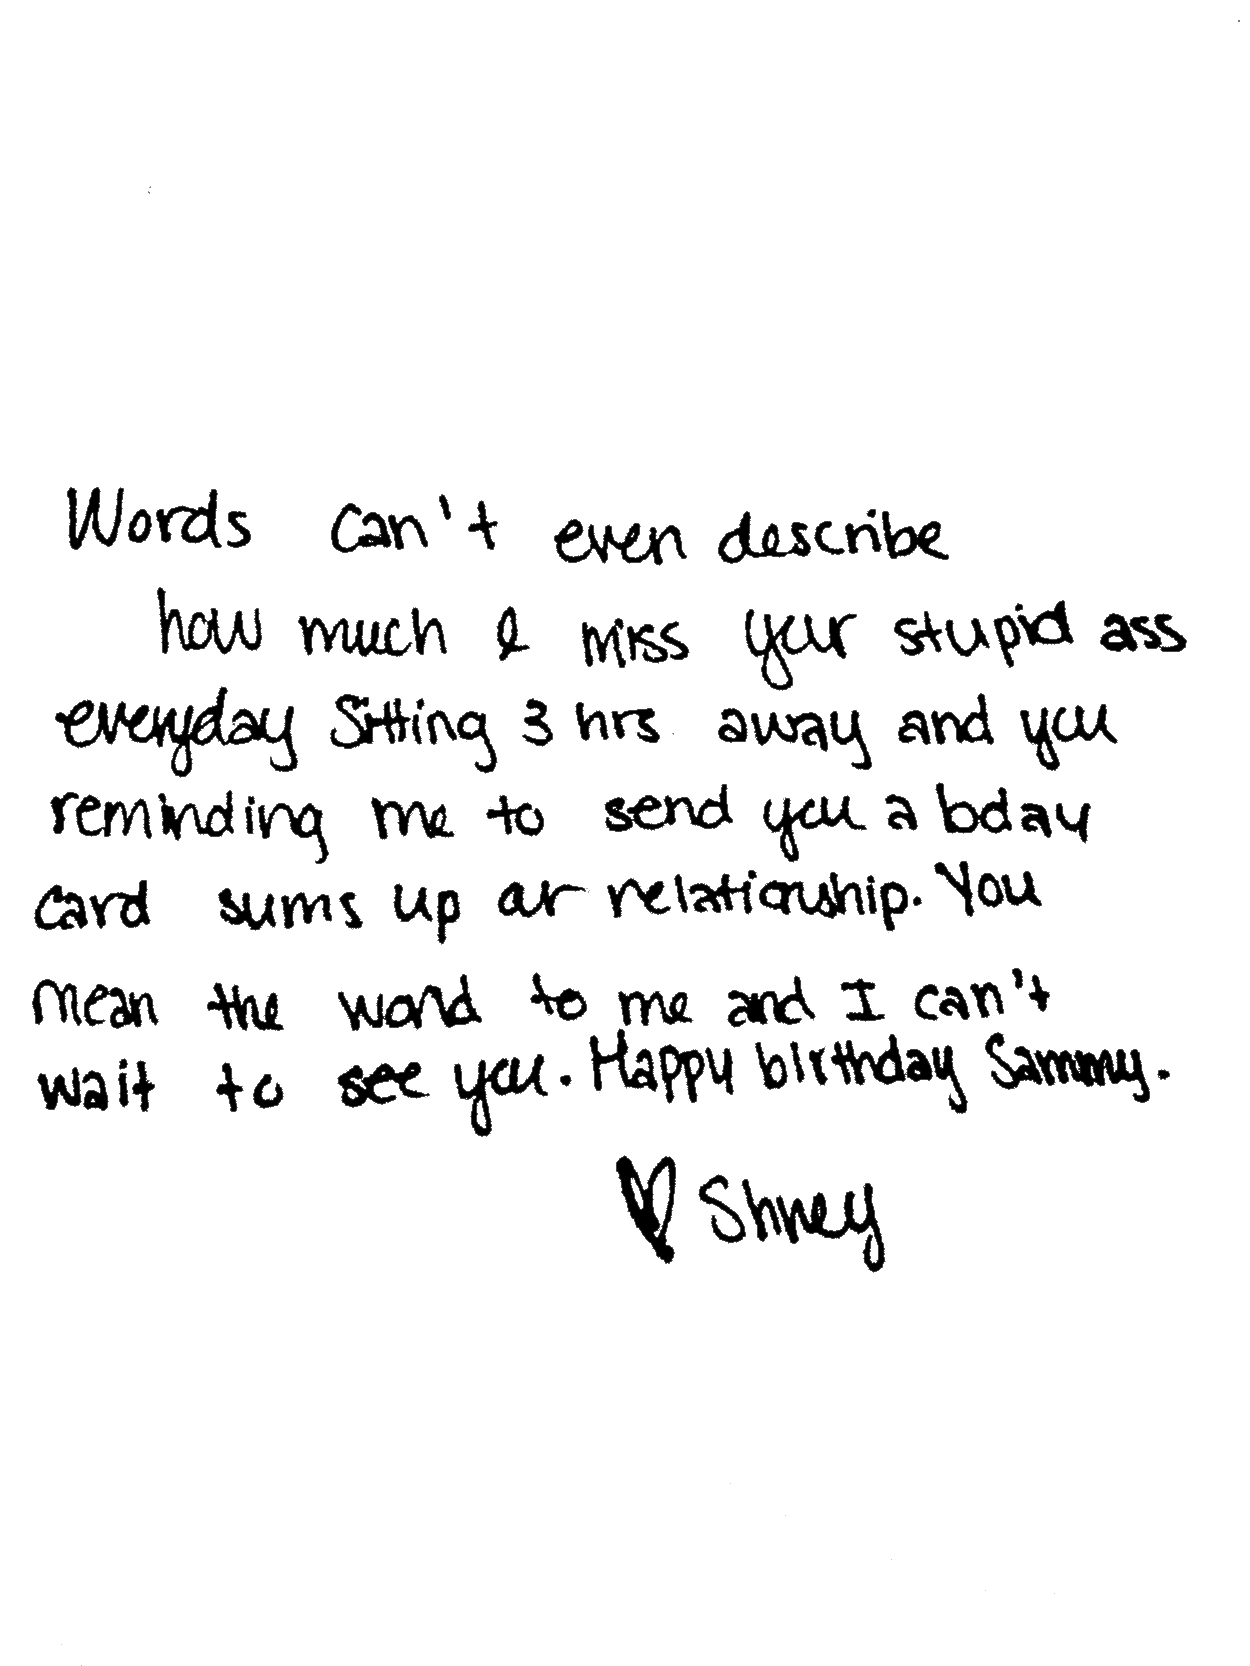 Words can't even describe
how much I miss your stupid ass
everyday Sitting 3 hrs away and you
reminding me to send you a bday
card sums up our relationship. You
mean the world to me and I can't
wait to see you. Happy birthday Sammy.
♡ Shney